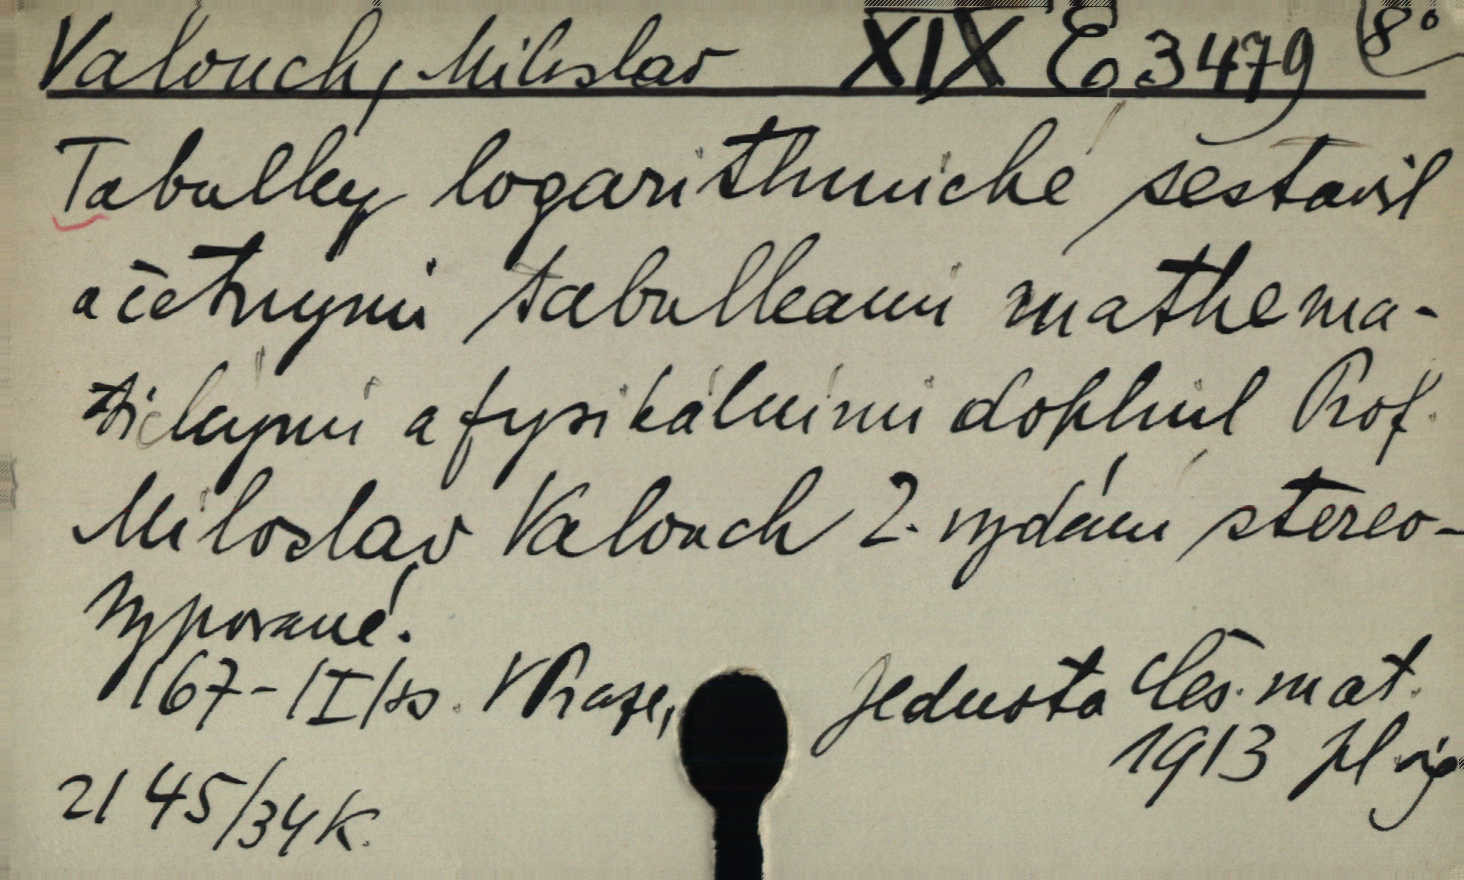 Valouch, Miloslav XIX E 3479 8°
Tabulky logarithmické sestavil
a četnými tabulkami mathema-
tickými a fysikálními doplnil Prof.
Miloslav Valouch 2. vydání stereo-
typované.
167-/I/ss. V Praze, Jednota Čes. mat.
1913
2145/34K.